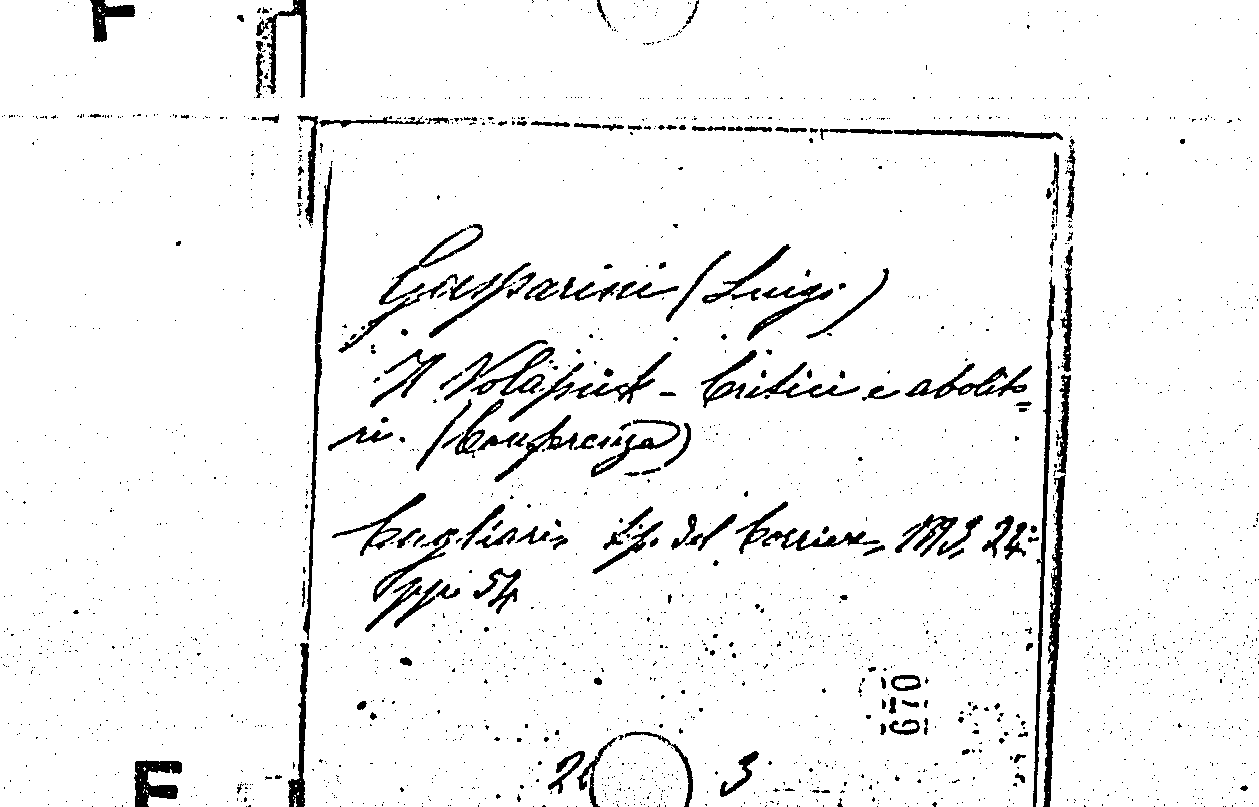 Gasparini (Luigi)
Il Volapük - Critici e abolito=
ri. (Conferenza)
Cagliari, tip. del Corriere, 1893, 24°
pp. 54
670
3
E